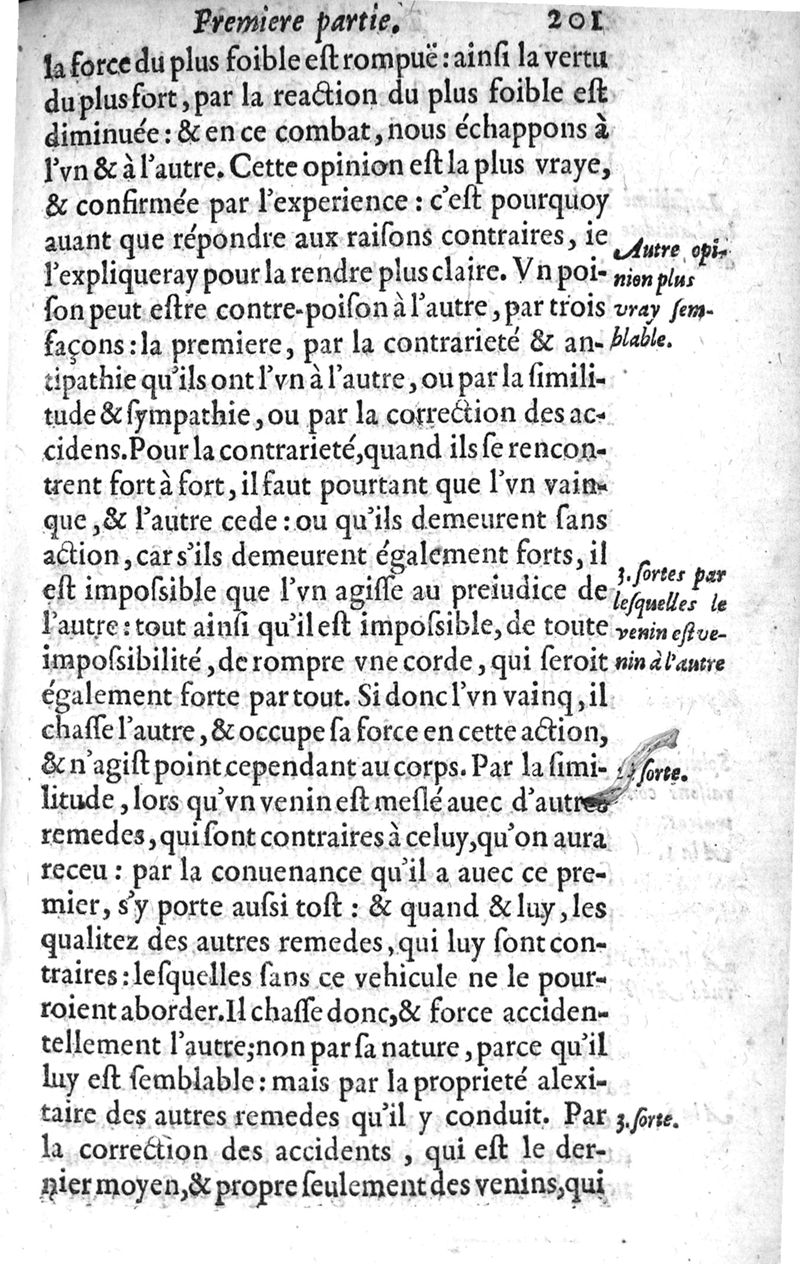 Premiere partie. 201
la force du plus foible eſt rompuë : ainſi la vertu
du plus fort, par la reaction du plus foible eſt
diminuée : & en ce combat, nous échappons à
l'vn & à l'autre. Cette opinion eſt la plus vraye,
& confirmée par l'experience : c'eſt pourquoy
auant que répondre aux raiſons contraires, ie
l'expliqueray pour la rendre plus claire. Vn poi-
ſon peut eſtre contre-poiſon à l'autre, par trois
façons : la premiere, par la contrarieté & an-
tipathie qu'ils ont l'vn à l'autre, ou par la ſimili-
tude & ſympathie, ou par la correction des ac-
cidens. Pour la contrarieté, quand ils ſe rencon-
trent fort à fort, il faut pourtant que l'vn vain-
que, & l'autre cede : ou qu'ils demeurent ſans
action, car s'ils demeurent également forts, il
eſt impoſsible que l'vn agiſſe au preiudice de
l'autre : tout ainſi qu'il eſt impoſsible, de toute
impoſsibilité, de rompre vne corde, qui ſeroit
également forte par tout. Si donc l'vn vainq, il
chaſſe l'autre, & occupe ſa force en cette action,
& n'agiſt point cependant au corps. Par la ſimi-
litude, lors qu'vn venin eſt meſlé auec d'autres
remedes, qui ſont contraires à celuy, qu'on aura
receu : par la conuenance qu'il a auec ce pre-
mier, s'y porte auſsi toſt : & quand & luy, les
qualitez des autres remedes, qui luy ſont con-
traires : leſquelles ſans ce vehicule ne le pour-
roient aborder. Il chaſſe donc, & force acciden-
tellement l'autre; non par ſa nature, parce qu'il
luy eſt ſemblable : mais par la proprieté alexi-
taire des autres remedes qu'il y conduit. Par
la correction des accidents, qui eſt le der-
nier moyen, & propre ſeulement des venins, qui
Autre opi-
nion plus
vray ſem-
blable.
3. ſortes par
leſquelles le
venin eſt ve-
nin à l'autre
ſorte.
3. ſorte.